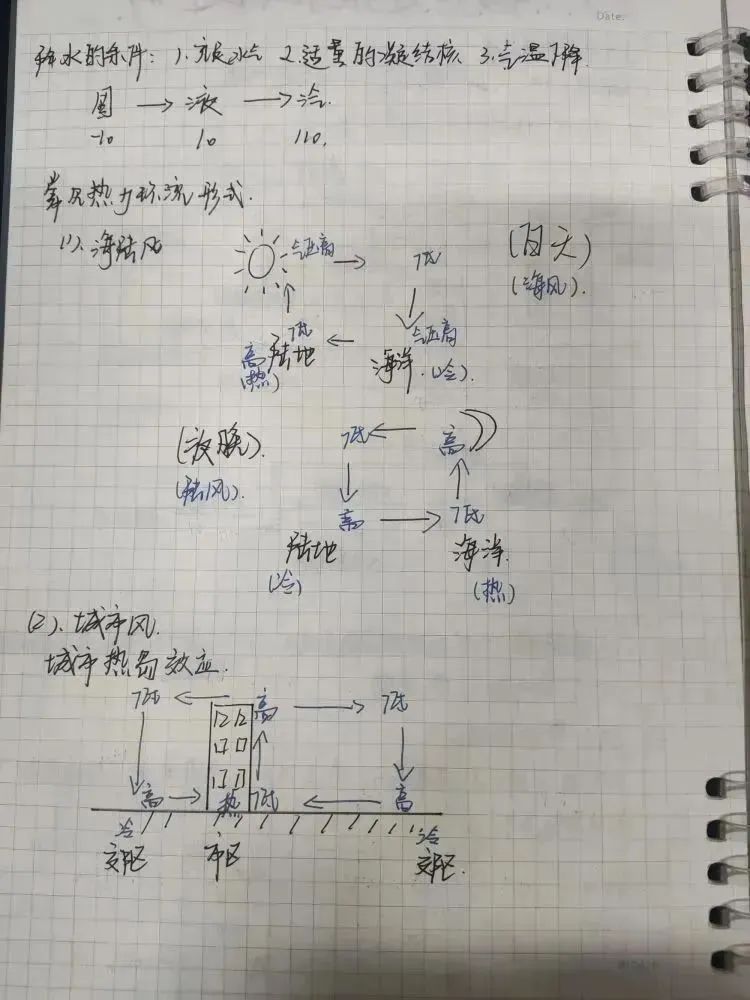 Date.
降水的条件: 1.充足水汽 2.适量的凝结核 3.气温下降.
固 → 液 → 汽.
-10 10 110.
常见热力环流形式.
(1). 海陆风
气压高 → 低 (白天)
(海风).
低 ← 气压高
高 陆地 海洋. (冷).
(热)
(夜晚). 低 ← 高
(陆风).
高 → 低
陆地 海洋.
(冷) (热)
(2). 城市风.
城市热岛效应.
低 ← 高 → 低
高 → 热 低 ← 高
冷 冷
郊区 市区 郊区.